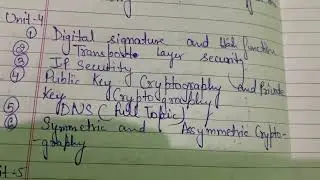 Unit-4
① Digital signature and Hash function
② Transpost Layer security
③ IP Security
④ Public Key Cryptography and Private
Key Cryptography
⑤ DNS (Full Topic)
⑥ Symmetric and Assymetric Crypto-
-graphy
it-5